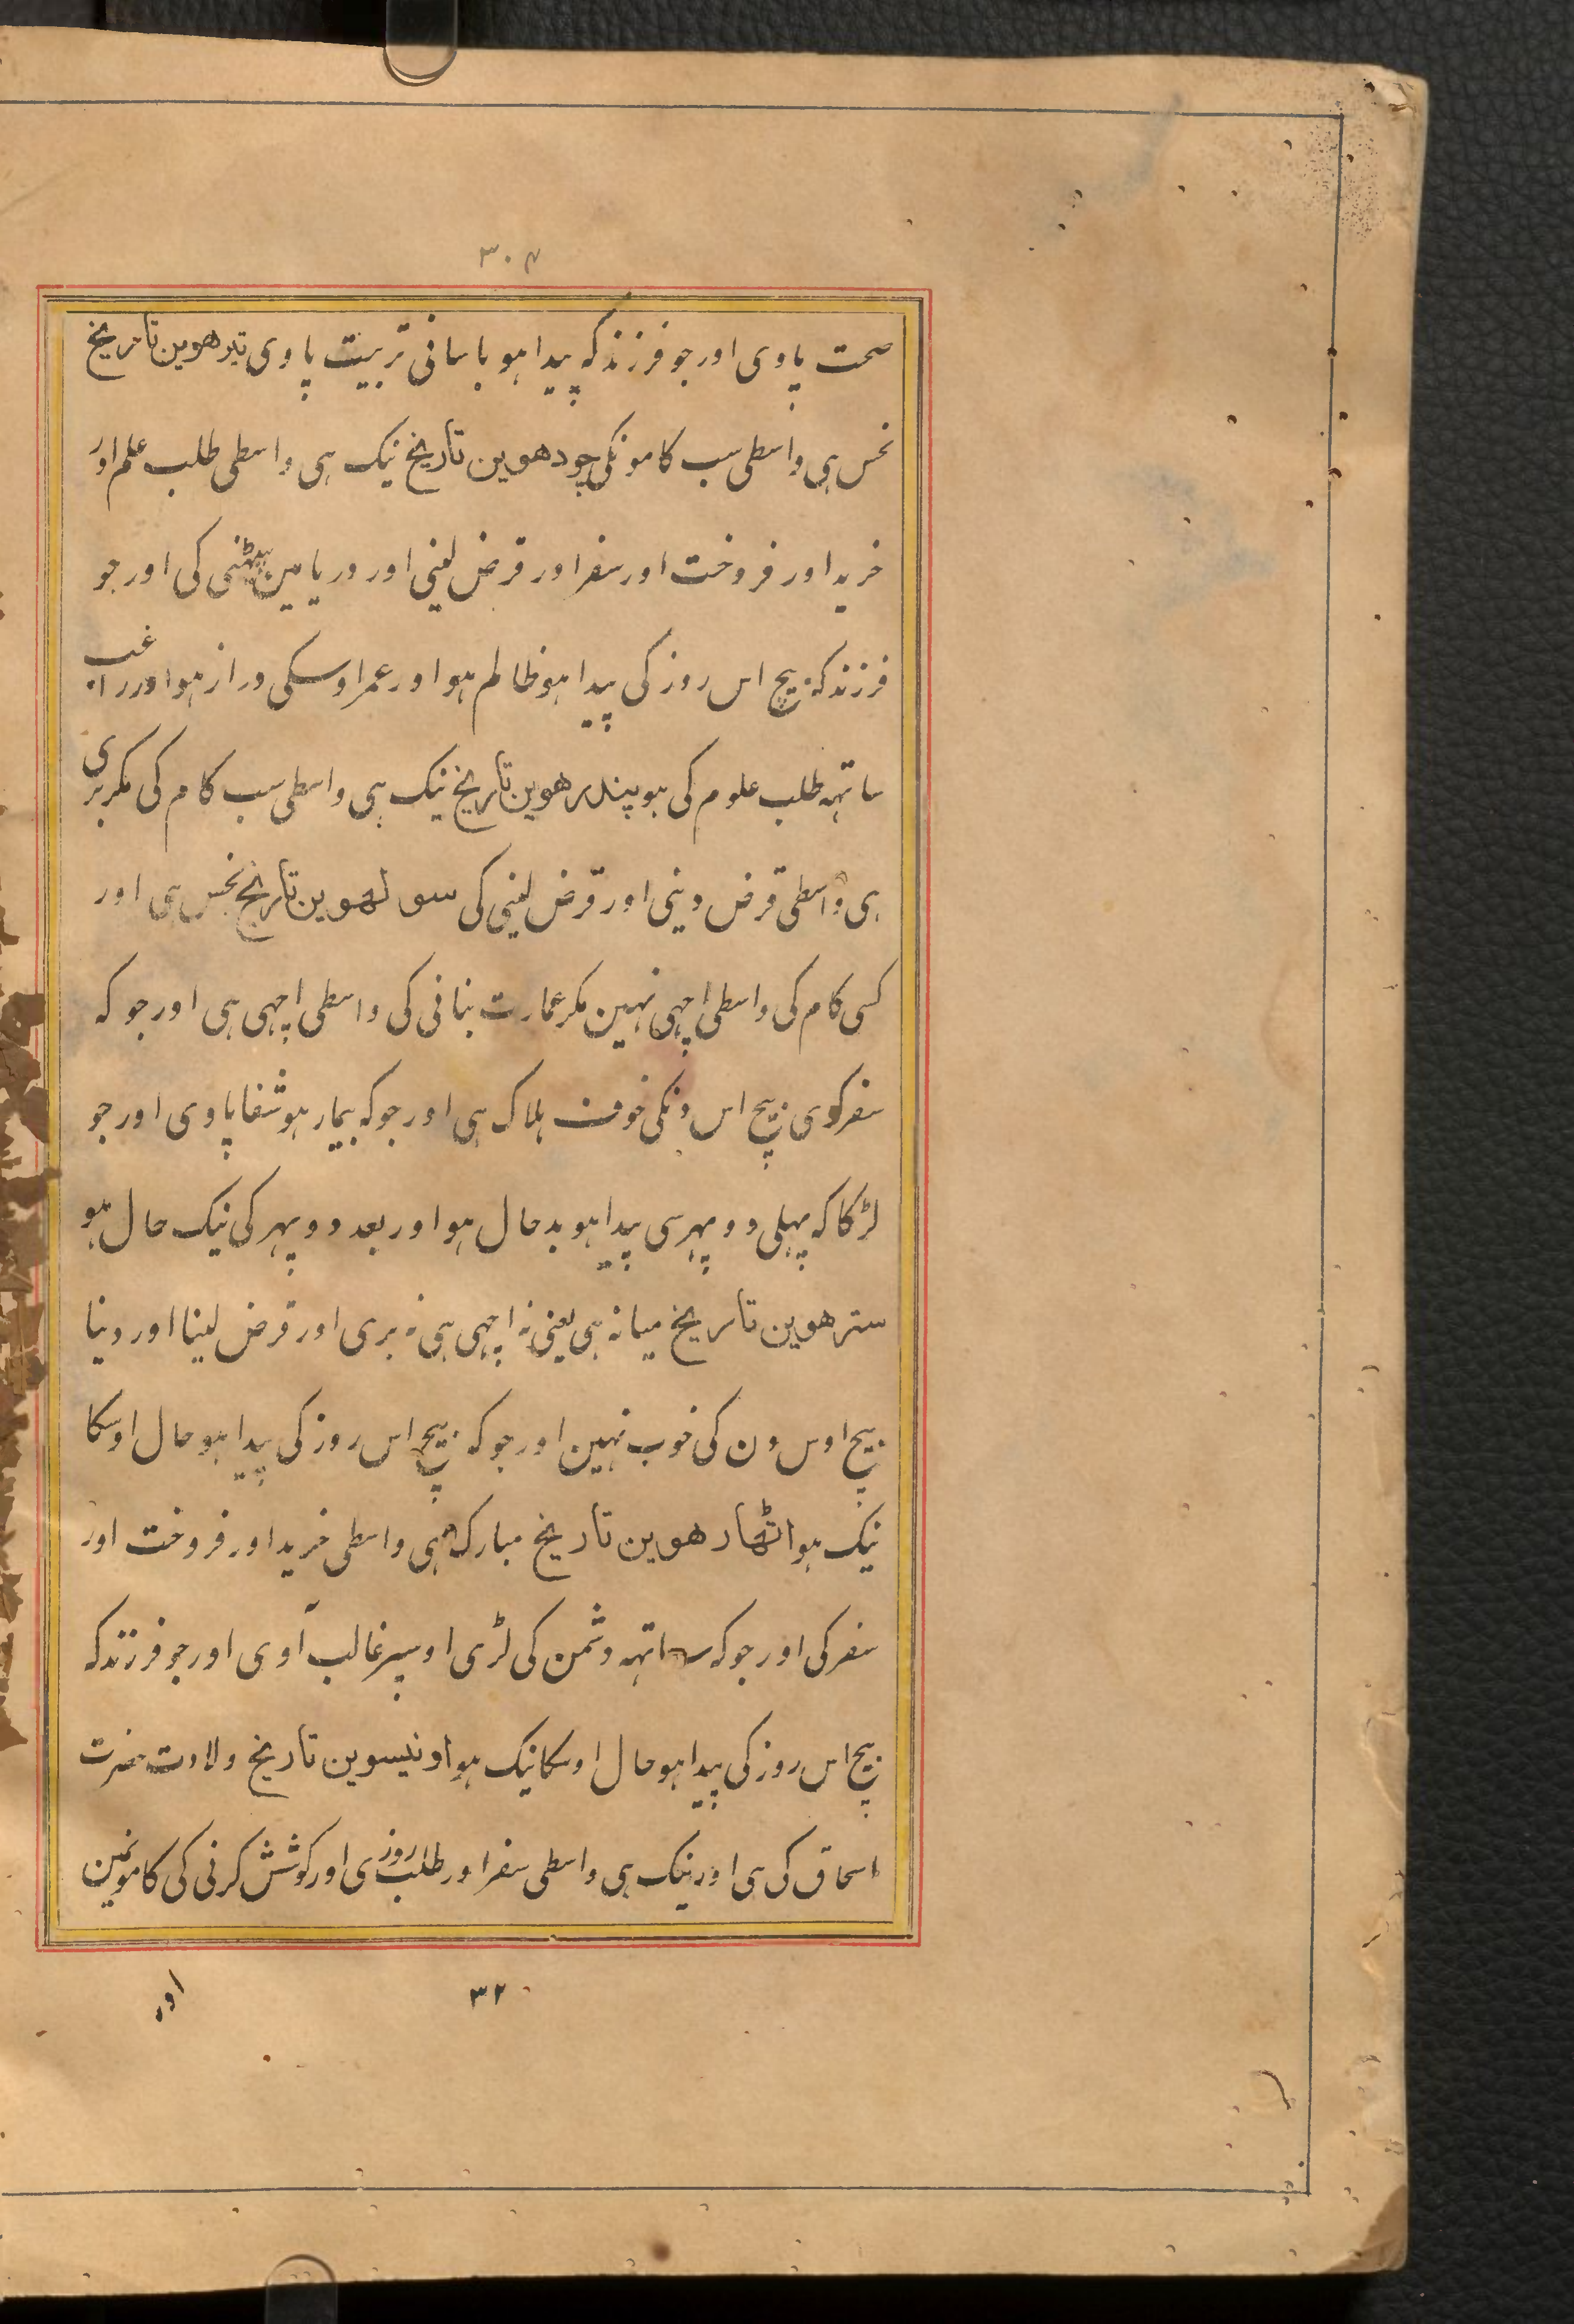 ۳۰۴
صحت پاوی اور جو فرزند که پیدا هو باسانی تربیت پاوی تیرهوین تاریخ
نحس هی واسطی سب کامونکی چودهوین تاریخ نیک هی واسطی طلب علم اور
خرید اور فروخت اور سفر اور قرض لینی اور دریا مین بیٹهنی کی اور جو
فرزند که بیچ اس روز کی پیدا هو ظالم هو اور عمر اوسکی دراز هو اور راغب
ساتهه طلب علوم کی هو پندرهوین تاریخ نیک هی واسطی سب کام کی مکر بری
هی واسطی قرض دینی اور قرض لینی کی سولهوین تاریخ نحس هی اور
کسی کام کی واسطی اچهی نهین مکر عمارت بنانی کی واسطی اچهی هی اور جو که
سفر کری بیچ اس دنکی خوف هلاک هی اور جو که بیمار هو شفا پاوی اور جو
لڑکا که پهلی دوپهر سی پیدا هو بد حال هو اور بعد دوپهر کی نیک حال هو
سترهوین تاریخ میانه هی یعنی نه اچهی هی نه بری اور قرض لینا اور دینا
بیچ اوس دن کی خوب نهین اور جو که بیچ اس روز کی پیدا هو حال اوسکا
نیک هو اٹهارهوین تاریخ مبارک هی واسطی خرید اور فروخت اور
سفر کی اور جو که ساتهه دشمن کی لڑی اوسپر غالب آوی اور جو فرزند که
بیچ اس روز کی پیدا هو حال اوسکا نیک هو اونیسوین تاریخ ولادت حضرت
اسحاق کی هی اور نیک هی واسطی سفر اور طلب روزی اور کوشش کرنی کی کامونمین
۳۲
اور